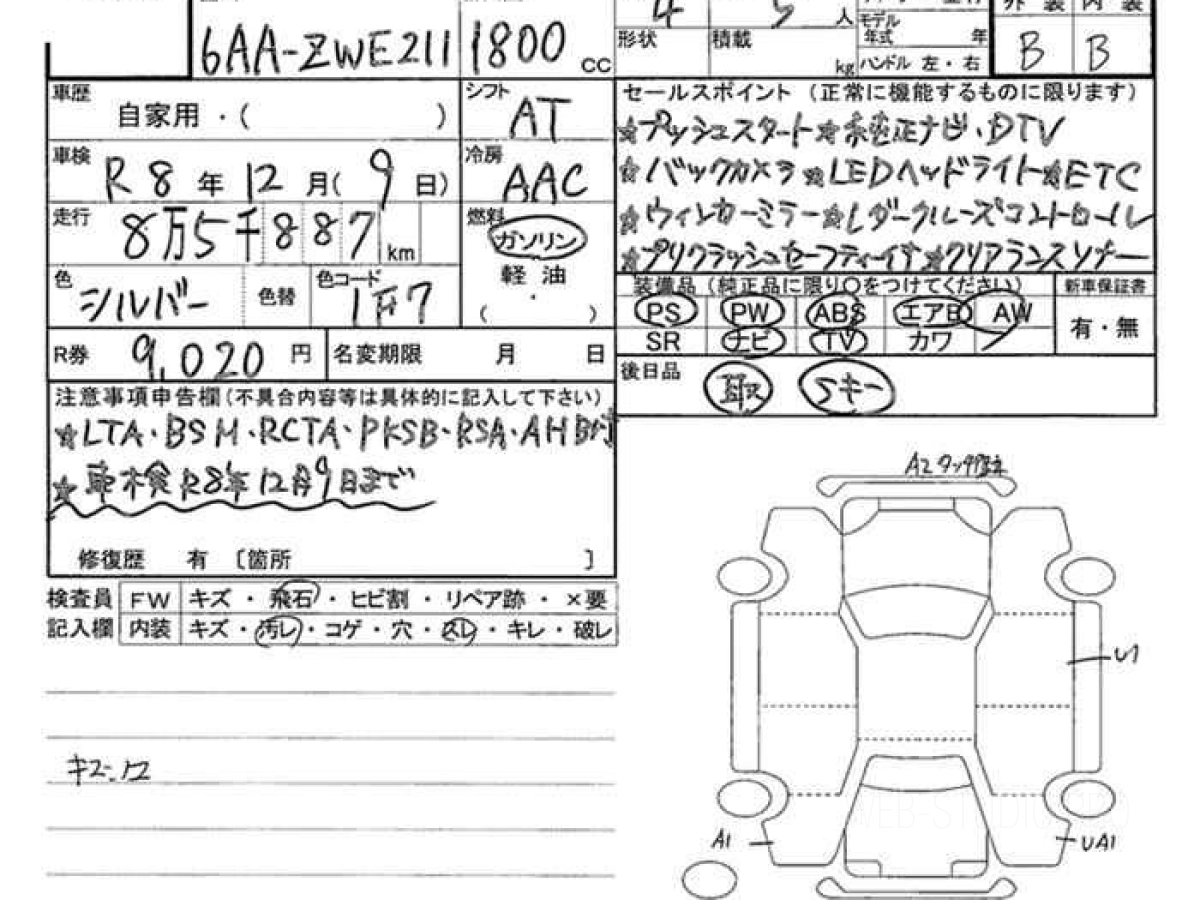 4 5 人
モデル
年式 年
外装 内装
6AA-ZWE211 1800 cc
形状 積載 kg
ハンドル 左・右
B B
車歴 自家用・( )
シフト AT
車検 R8年12月(9日)
冷房 AAC
走行 8万5千887km
燃料 ガソリン
軽油
( )
色 シルバー 色替 色コード 1F7
R券 9,020円 名変期限 月 日
セールスポイント(正常に機能するものに限ります)
☆プッシュスタート☆純正ナビ・DTV
☆バックカメラ☆LEDヘッドライト☆ETC
☆ウィンカーミラー☆レダークルーズコントロール
☆プリクラッシュセーフティーイナ☆クリアランスソナー
装備品(純正品に限り○をつけてください) 新車保証書
PS PW ABS エアB AW 有・無
SR ナビ TV カワ
後日品 取 Sキー
注意事項申告欄(不具合内容等は具体的に記入して下さい)
☆LTA・BSM・RCTA・PKSB・RSA・AHB付
☆車検R8年12月9日まで
修復歴 有 〔箇所 〕
検査員 FW キズ・飛石・ヒビ割・リペア跡・×要
記入欄 内装 キズ・汚レ・コゲ・穴・スレ・キレ・破レ
A2タッチ
U1
A1
UA1
WEB-STUDIO.PRO